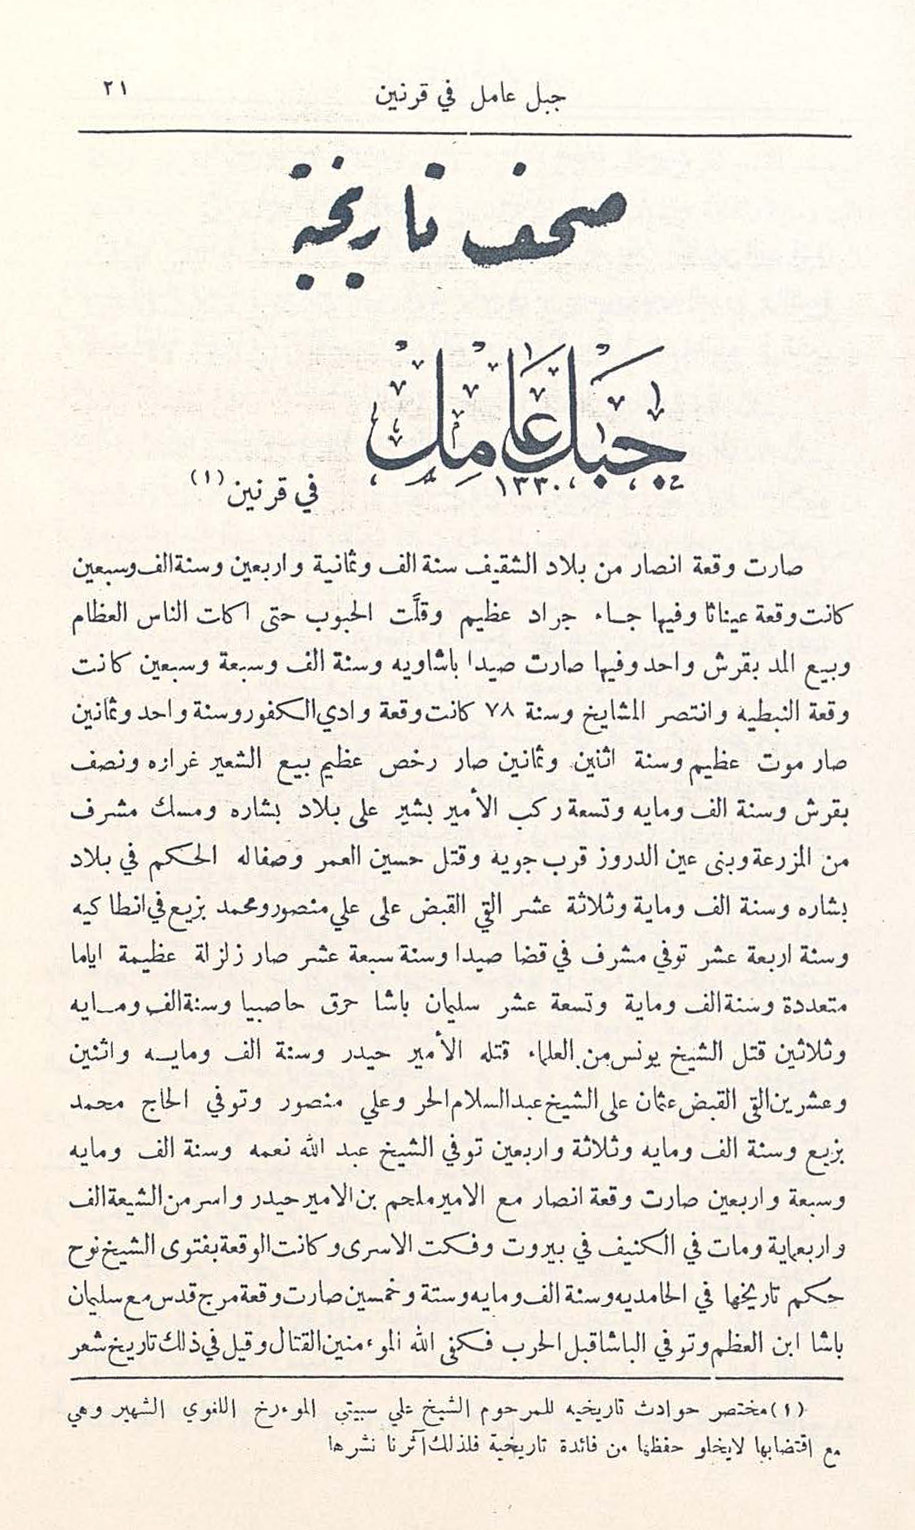 جبل عامل في قرنين
٢١
صحف تاريخية
جبل عامل
١٣٣٠
في قرنين (١)
صارت وقعة انصار من بلاد الشقيف سنة الف وثمانية واربعين وسنة الف وسبعين
كانت وقعة عيناثا وفيها جاء جراد عظيم وقلَّت الحبوب حتى اكات الناس العظام
وبيع المد بقرش واحد وفيها صارت صيدا باشاويه وسنة الف وسبعة وسبعين كانت
وقعة النبطيه وانتصر المشايخ وسنة ٧٨ كانت وقعة وادي الكفور وسنة واحد وثمانين
صار موت عظيم وسنة اثنين وثمانين صار رخص عظيم بيع الشعير غراره ونصف
بقرش وسنة الف ومايه وتسعة ركب الأمير بشير على بلاد بشاره ومسك مشرف
من المزرعة وبنى عين الدروز قرب جويه وقتل حسين العمر وصفاله الحكم في بلاد
بشاره وسنة الف وماية وثلاثة عشر القي القبض على علي منصور ومحمد بزيع في انطاكيه
وسنة اربعة عشر توفي مشرف في قضا صيدا وسنة سبعة عشر صار زلزلة عظيمة اياما
متعددة وسنة الف وماية وتسعة عشر سليمان باشا حرق حاصبيا وسنة الف ومايه
وثلاثين قتل الشيخ يونس من العلماء قتله الأمير حيدر وسنة الف ومايه واثنين
وعشرين القى القبض عثمان على الشيخ عبد السلام الحر وعلي منصور وتوفي الحاج محمد
بزيع وسنة الف ومايه وثلاثة واربعين توفي الشيخ عبد الله نعمه وسنة الف ومايه
وسبعة واربعين صارت وقعة انصار مع الامير ملحم بن الامير حيدر واسر من الشيعة الف
واربعماية ومات في الكنيف في بيروت وفكت الاسرى وكانت الوقعة بفتوى الشيخ نوح
حكم تاريخها في الحامديه وسنة الف ومايه وستة وخمسين صارت وقعة مرج قدس مع سليمان
باشا ابن العظم وتوفي الباشا قبل الحرب فكفى الله المؤمنين القتال وقيل في ذلك تاريخ شعر
(١) مختصر حوادث تاريخيه للمرحوم الشيخ علي سبيتي المؤرخ اللغوي الشهير وهي
مع اقتضابها لايخلو حفظها من فائدة تاريخية فلذلك آثرنا نشرها